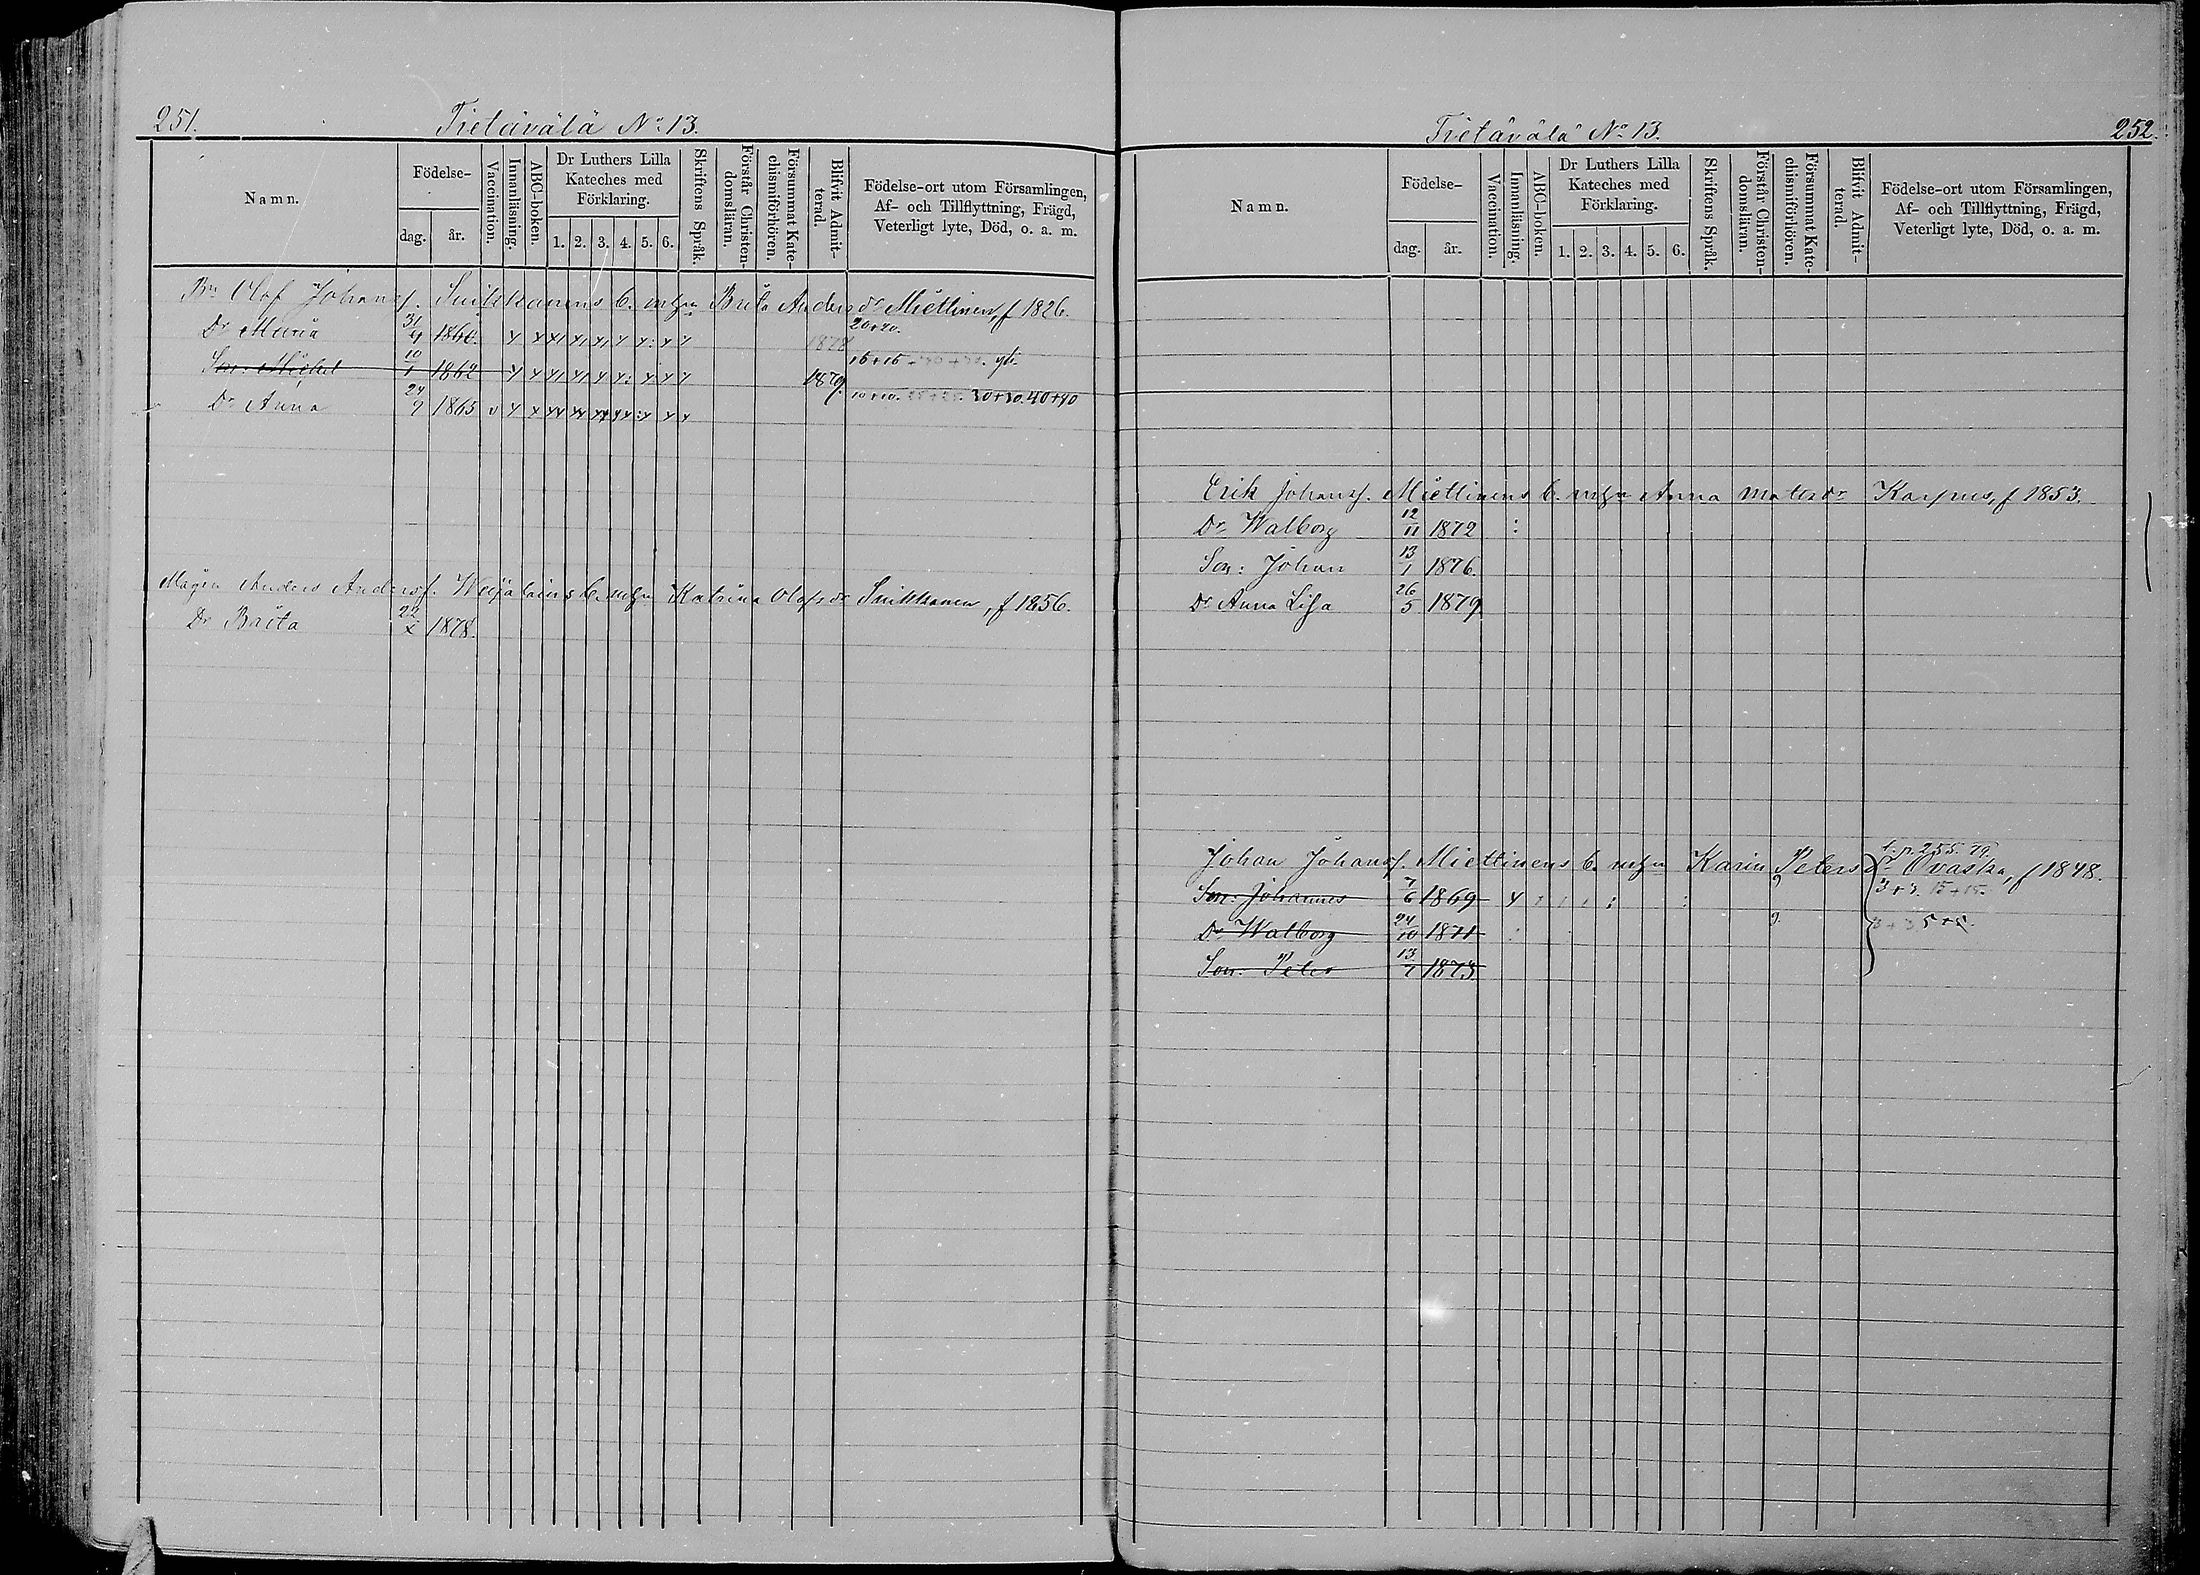 251.
Tietäválä No 13.
Namn.
Födelse-
dag.
år.
Vaccination.
Innanläsning.
ABC-boken.
Dr Luthers Lilla
Kateches med
Förklaring.
1. 2. 3. 4. 5. 6.
Skriftens Språk.
Förstår Christen-
domsläran.
Försummat Kate-
chismiförhören.
Blifvit Admit-
terad.
Födelse-ort utom Församlingen,
Af- och Tillflyttning, Frägd,
Veterligt lyte, Död, o. a. m.
Bn Olof Johansf. Snikkanens b. m hn Brita Anders dr Miettinen, f 1826.
Dr Maria 31/4 1860. 1878 20+20.
Son: Michel 10/1 1862 1879. 16+16
Dr Anna 24/9 1865 v 10+10. 30+30. 40+40
Mågen Anders Andersf. b. m hn Katrina Olofs dr Snikkanen, f 1856.
Dr Brita 1878.
Tietäválä No 13.
252.
Namn.
Födelse-
dag.
år.
Vaccination.
Innanläsning.
ABC-boken.
Dr Luthers Lilla
Kateches med
Förklaring.
1. 2. 3. 4. 5. 6.
Skriftens Språk.
Förstår Christen-
domsläran.
Försummat Kate-
chismiförhören.
Blifvit Admit-
terad.
Födelse-ort utom Församlingen,
Af- och Tillflyttning, Frägd,
Veterligt lyte, Död, o. a. m.
Erik Johansf. Miettinens b. m hn Anna Mats dr Karpus, f 1853.
Dr Walborg 12/11 1872 :
Son: Johan 13/1 1876.
Dr Anna Lisa 26/5 1879
t. p. 255. 79.
Johan Johansf. Miettinens b. m hn Karin Peters dr Ovaska, f 1848.
Son: Johannes 7/6 1869 3+3. 15+15.
Dr Walborg 24/10 1871 : 9. 3+3 5+5.
Son: Peter 13/7 1873.